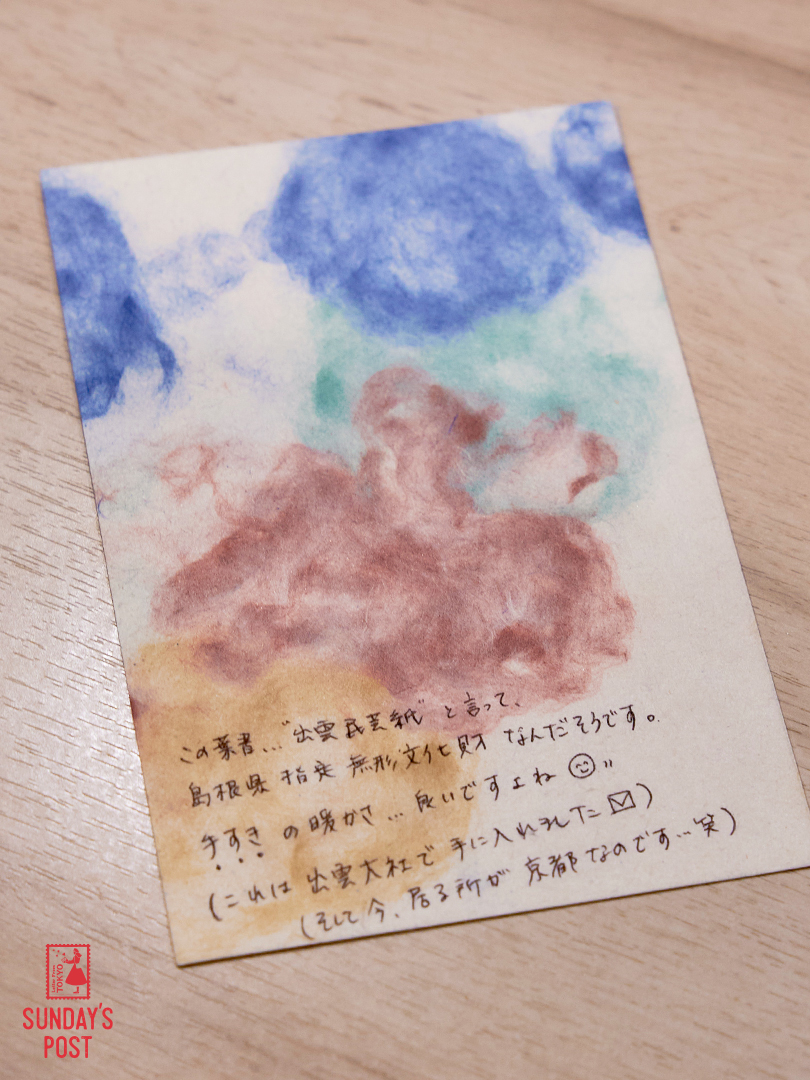 この葉書…"出雲民芸紙"と言って、
島根県 指定 無形文化財 なんだそうです。
手すき の暖かさ… 良いですよね ☺〃
(これは 出雲大社で 手に入れました ✉)
(そして今、居る所が 京都なのです… 笑)
Letter from
TOKYO
SUNDAY'S
POST